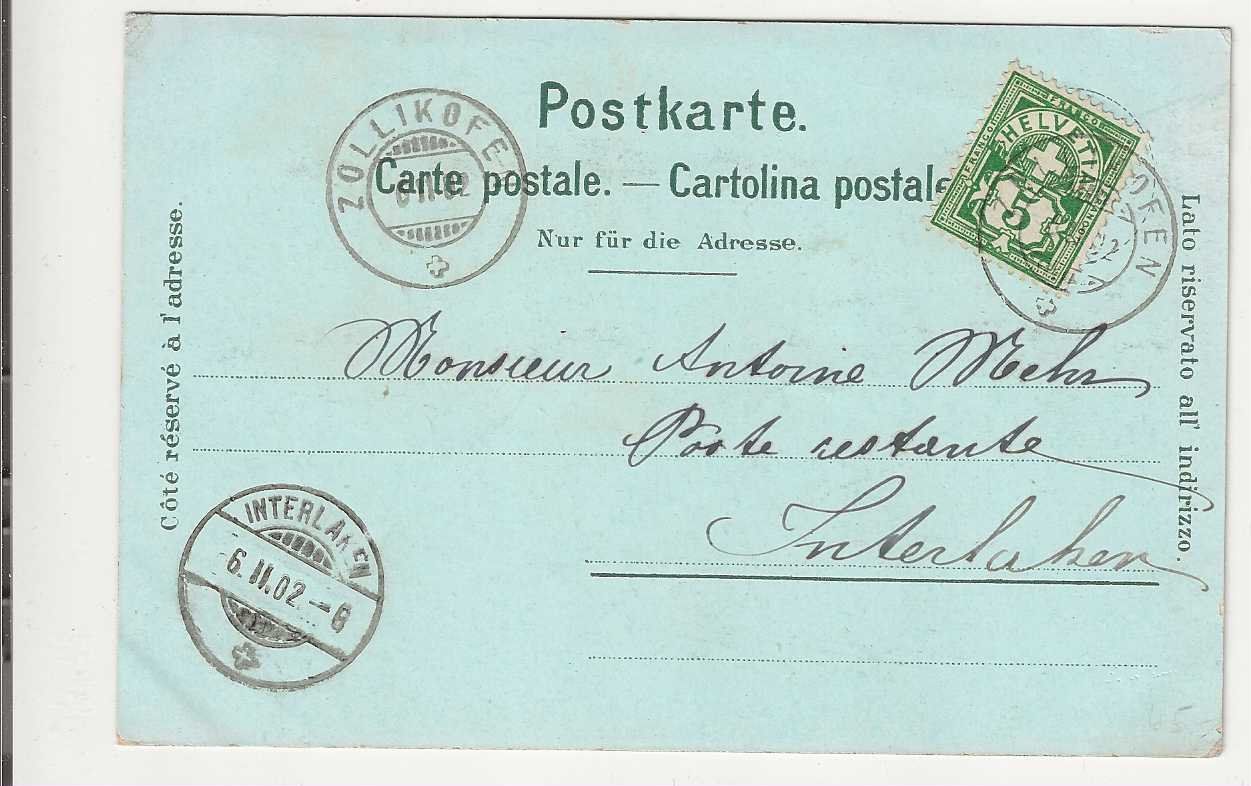 Postkarte.
Carte postale. — Cartolina postale
Nur für die Adresse.
Côté réservé à l'adresse.
Lato riservato all' indirizzo.
ZOLLIKOFE
6.II.02
FRANCO
HELVETIA
FRANCO
FRANCO
5
OFEN
02
Monsieur Antoine Mehr
Poste restante
Interlaken
INTERLAKEN
6.II.02.–6